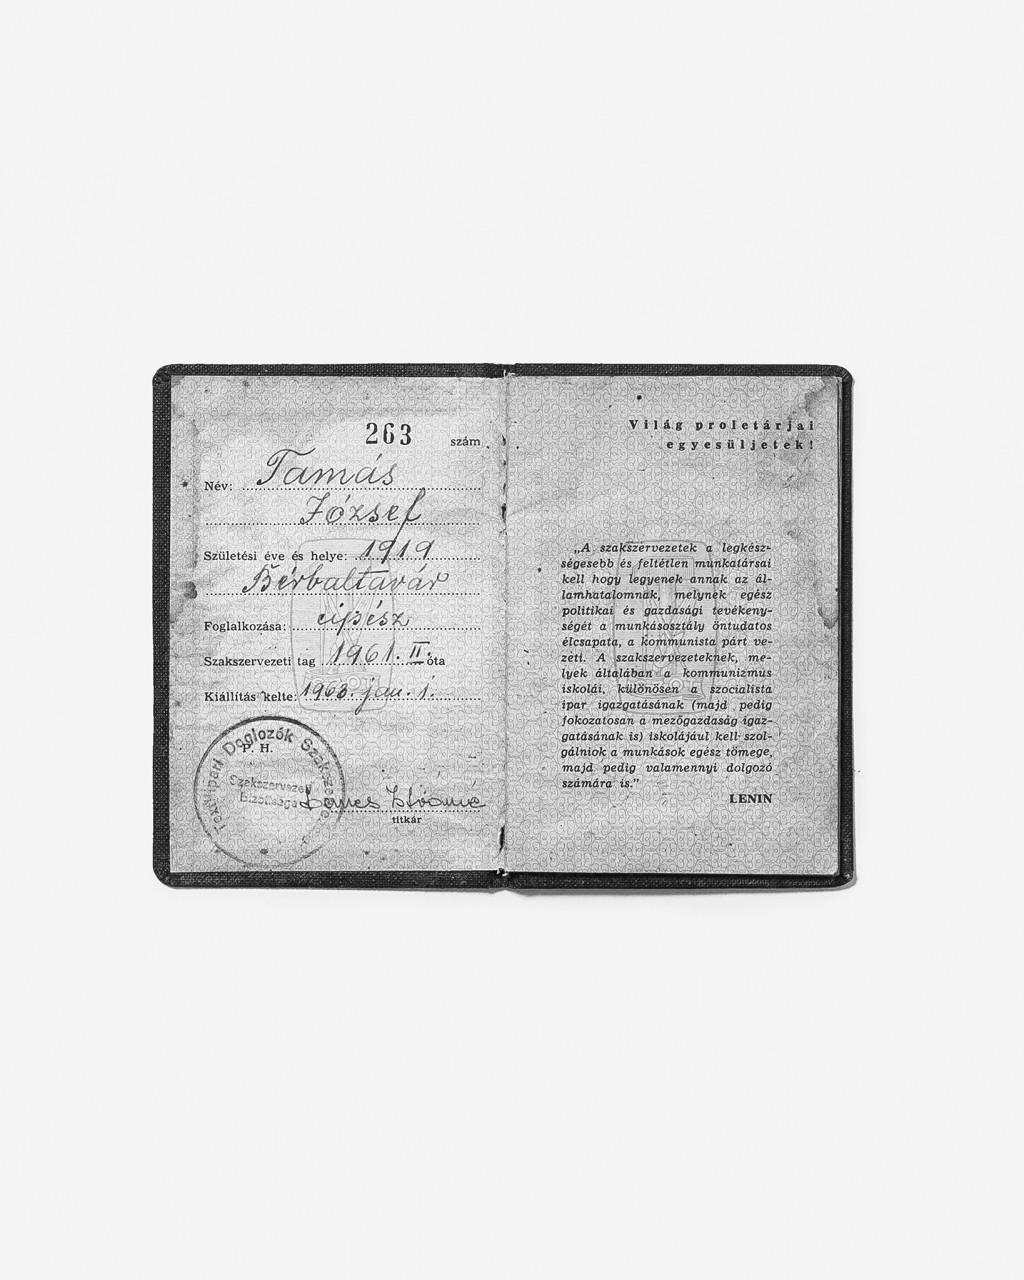 263 szám
Név: Tamás
József
Születési éve és helye: 1919
Bérbaltavár
Foglalkozása: cipész
Szakszervezeti tag 1961. II. óta
Kiállítás kelte: 1963. jan. 1.
P. H.
Textilipari Doglozók Szakszerve
Szakszervezeti
Bizottsága
titkár
Világ proletárjai
egyesüljetek!
„A szakszervezetek a legkész-
ségesebb és feltétlen munkatársai
kell hogy legyenek annak az ál-
lamhatalomnak, melynek egész
politikai és gazdasági tevékeny-
ségét a munkásosztály öntudatos
élcsapata, a kommunista párt ve-
zeti. A szakszervezeteknek, me-
lyek általában a kommunizmus
iskolái, különösen a szocialista
ipar igazgatásának (majd pedig
fokozatosan a mezőgazdaság igaz-
gatásának is) iskolájául kell szol-
gálniok a munkások egész tömege,
majd pedig valamennyi dolgozó
számára is.”
LENIN